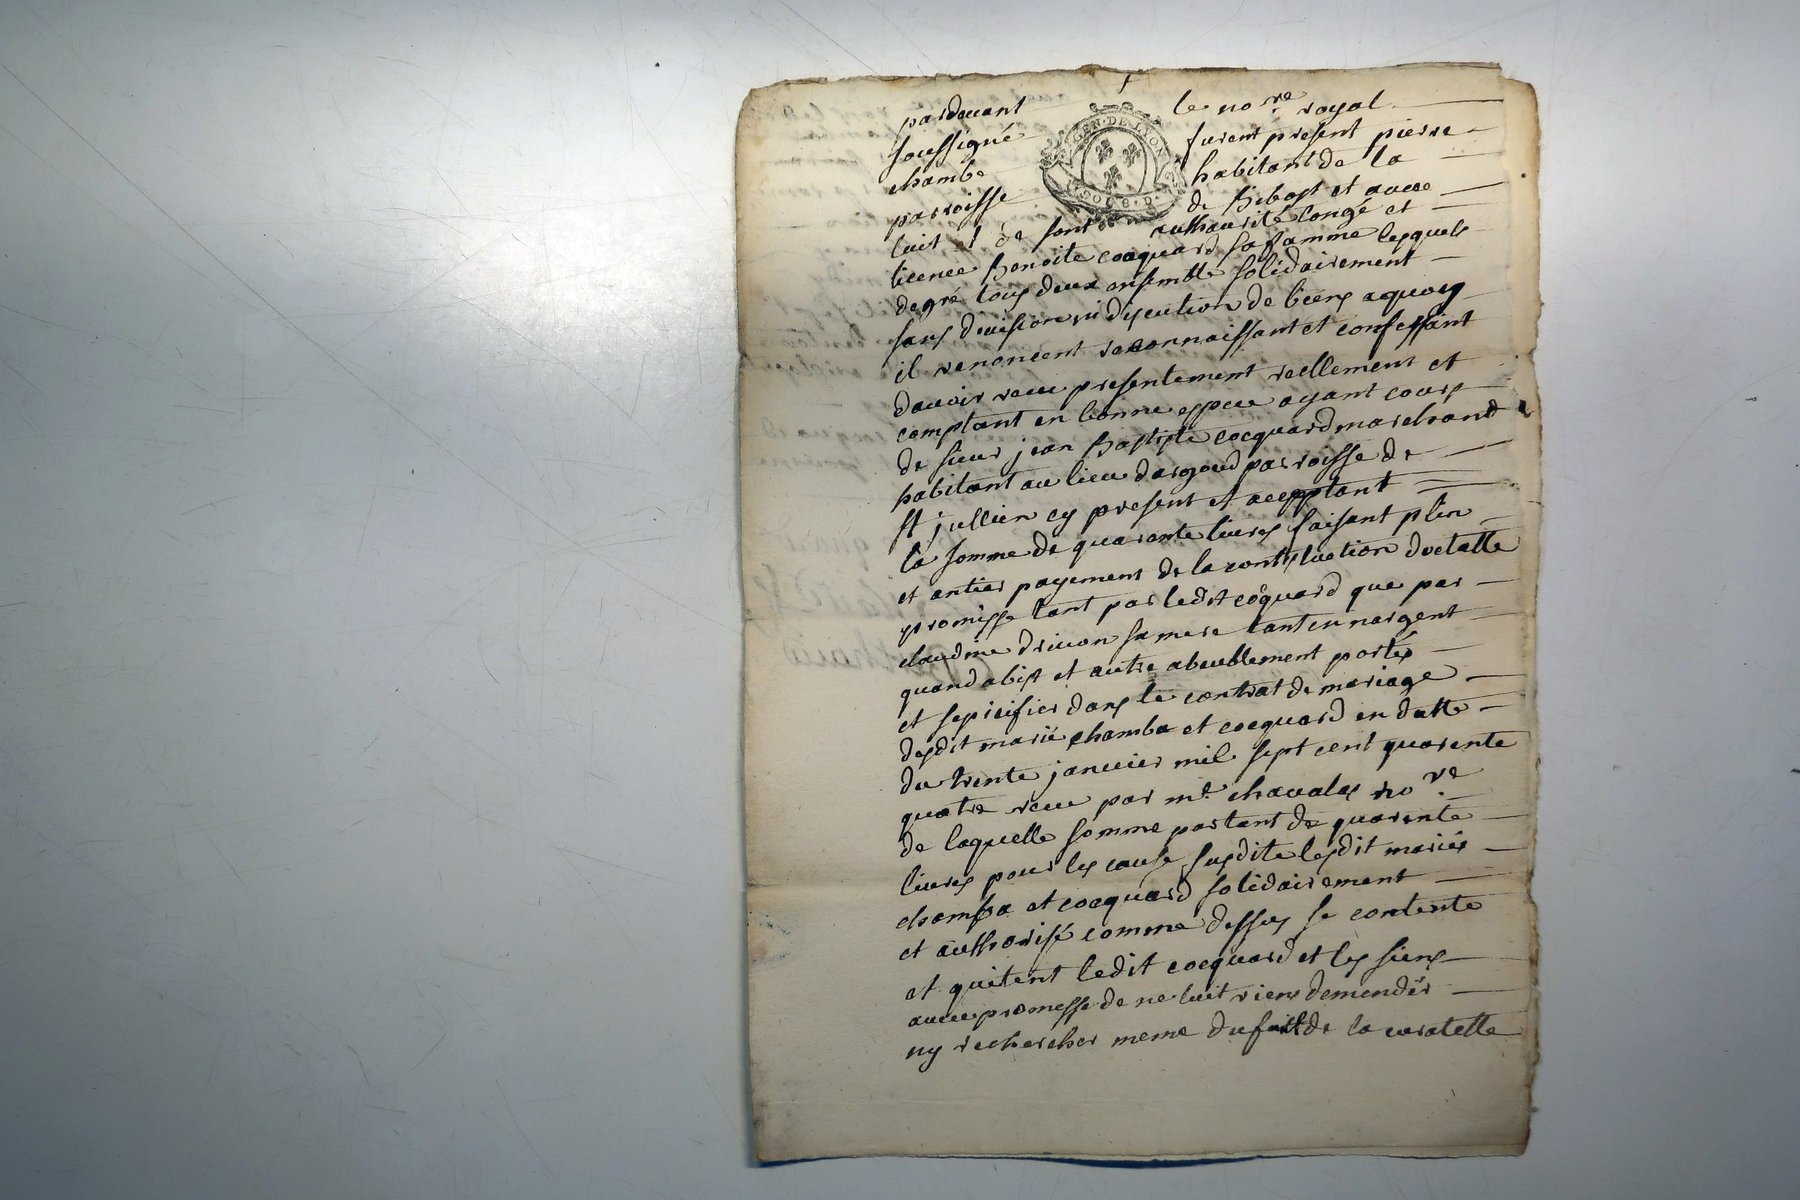 pardevant le no.re royal
soussigné furent present pierre
chambe habitant de la
parroisse de Bibost et avec
luit et de son authaurité congé et
licence Benoite cocquard sa famme lesquels
degré tous deux ensemble solidairement
sans devision ni discution de biens aquoy
il renoncent reconnaissant et confessant
davoir receu presentement reellement et
comptant en bonne espece ayant cours
de sieur jean Baptiste cocquard marchand
habitant au lieu dargoud parroisse de
st jullien cy present et aceptant
la somme de quarante livres faisant plin
et antier payement de la contitution doctalle
promisse tant par ledit coquard que par
claudine drivon sa mere tant en nargent
quand abist et autre abeublement portés
et sepicifier dans le contrat de mariage
desdit marié chamba et cocquard en datte
du trente janvier mil sept cent quarente
quatre receu par me. chavalas no.re
de laquelle somme partant de quarente
livres pour les cause susdite lesdit mariés
chamba et cocquard solidairement
et authorisé comme dessus se contente
et quitent ledit cocquard et les siens
avec promesse de ne luit riens demender
ny rechercher meme du fait de la curatelle
GEN·DE·LYON